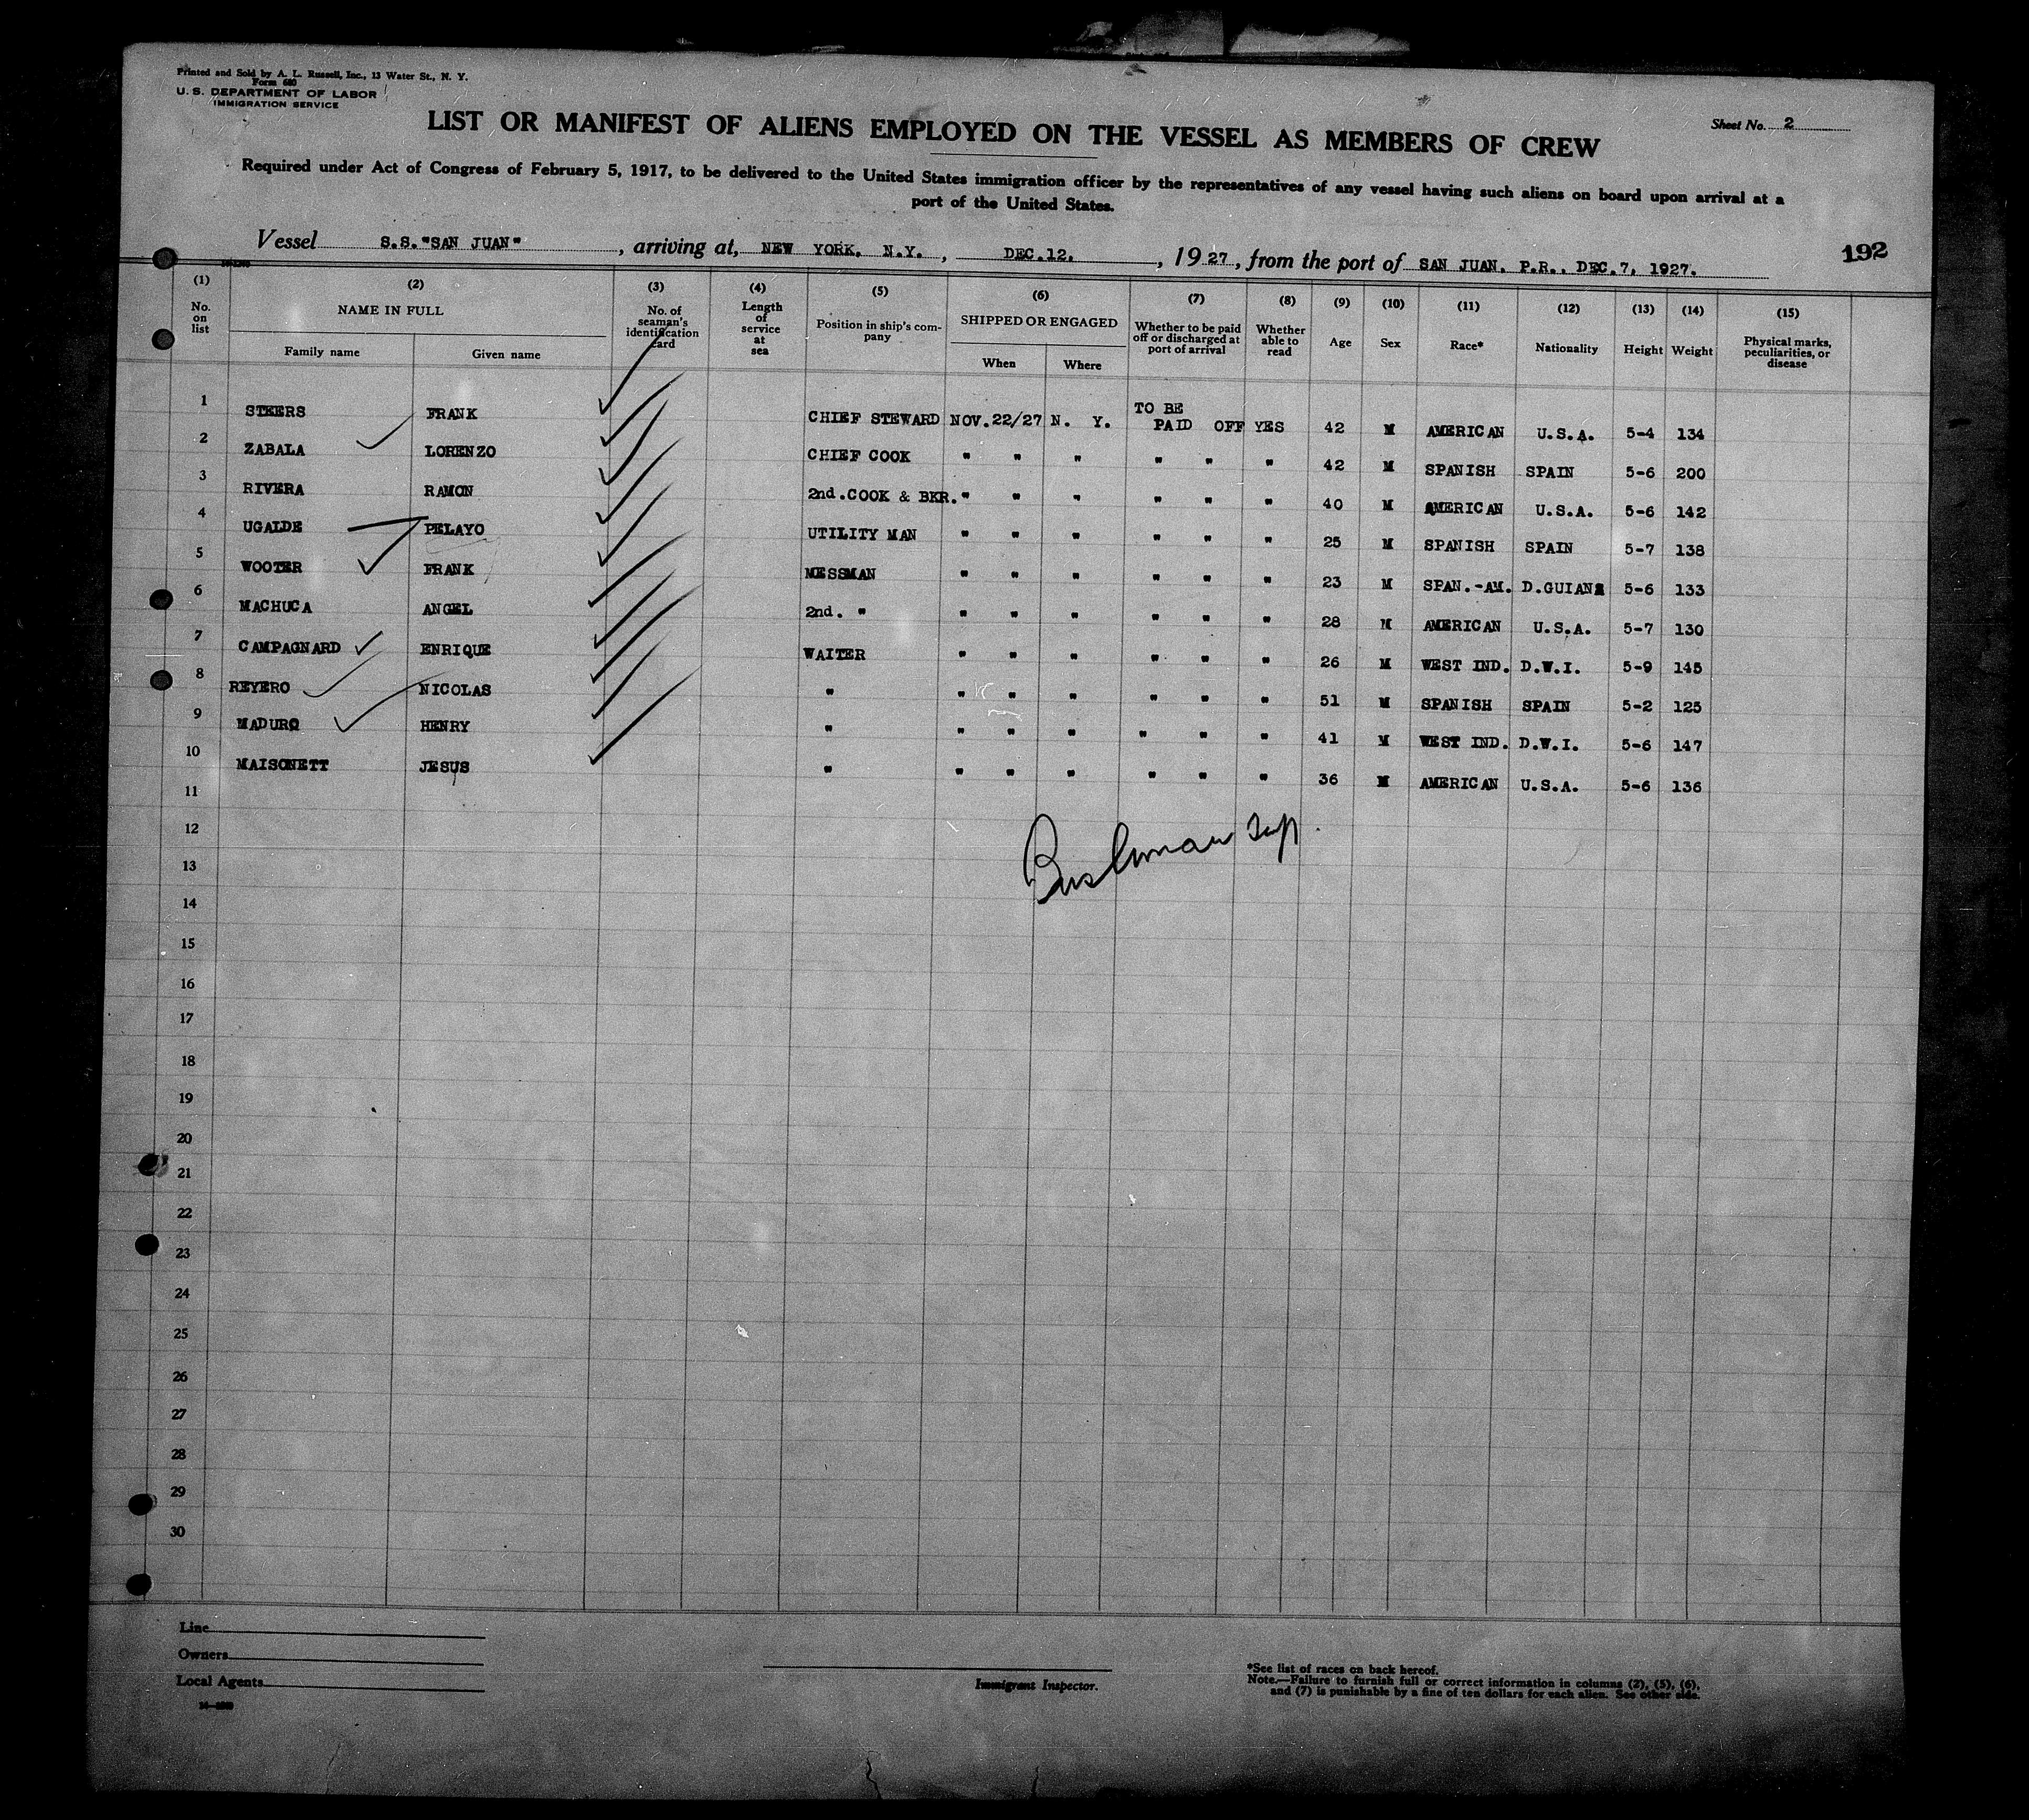 Printed and Sold by A. L. Russell, Inc., 13 Water St., N. Y.
Form 680
U. S. DEPARTMENT OF LABOR
IMMIGRATION SERVICE
Sheet No. 2
LIST OR MANIFEST OF ALIENS EMPLOYED ON THE VESSEL AS MEMBERS OF CREW
Required under Act of Congress of February 5, 1917, to be delivered to the United States immigration officer by the representatives of any vessel having such aliens on board upon arrival at a
port of the United States.
Vessel S.S."SAN JUAN", arriving at, NEW YORK, N.Y., DEC.12, 1927, from the port of SAN JUAN, P.R., DEC.7, 1927.
192
(1) No. on list
(2) NAME IN FULL Family name Given name
(3) No. of seaman's identification card
(4) Length of service at sea
(5) Position in ship's company
(6) SHIPPED OR ENGAGED When Where
(7) Whether to be paid off or discharged at port of arrival
(8) Whether able to read
(9) Age
(10) Sex
(11) Race*
(12) Nationality
(13) Height
(14) Weight
(15) Physical marks, peculiarities, or disease
1 STEERS FRANK CHIEF STEWARD NOV.22/27 N. Y. TO BE PAID OFF YES 42 M AMERICAN U.S.A. 5-4 134
2 ZABALA LORENZO CHIEF COOK " " " " " " 42 M SPANISH SPAIN 5-6 200
3 RIVERA RAMON 2nd.COOK & BKR. " " " " " " 40 M AMERICAN U.S.A. 5-6 142
4 UGALDE PELAYO UTILITY MAN " " " " " " 25 M SPANISH SPAIN 5-7 138
5 WOOTER FRANK MESSMAN " " " " " " 23 M SPAN.-AM. D.GUIANA 5-6 133
6 MACHUCA ANGEL 2nd. " " " " " " " 28 M AMERICAN U.S.A. 5-7 130
7 CAMPAGNARD ENRIQUE WAITER " " " " " " 26 M WEST IND. D.W.I. 5-9 145
8 REYERO NICOLAS " " " " " " " 51 M SPANISH SPAIN 5-2 125
9 MADURO HENRY " " " " " " " 41 M WEST IND. D.W.I. 5-6 147
10 MAISONETT JESUS " " " " " " " 36 M AMERICAN U.S.A. 5-6 136
11
12
13
14
15
16
17
18
19
20
21
22
23
24
25
26
27
28
29
30
Line
Owners
Local Agents
Immigrant Inspector.
*See list of races on back hereof.
Note.—Failure to furnish full or correct information in columns (2), (5), (6),
and (7) is punishable by a fine of ten dollars for each alien. See other side.